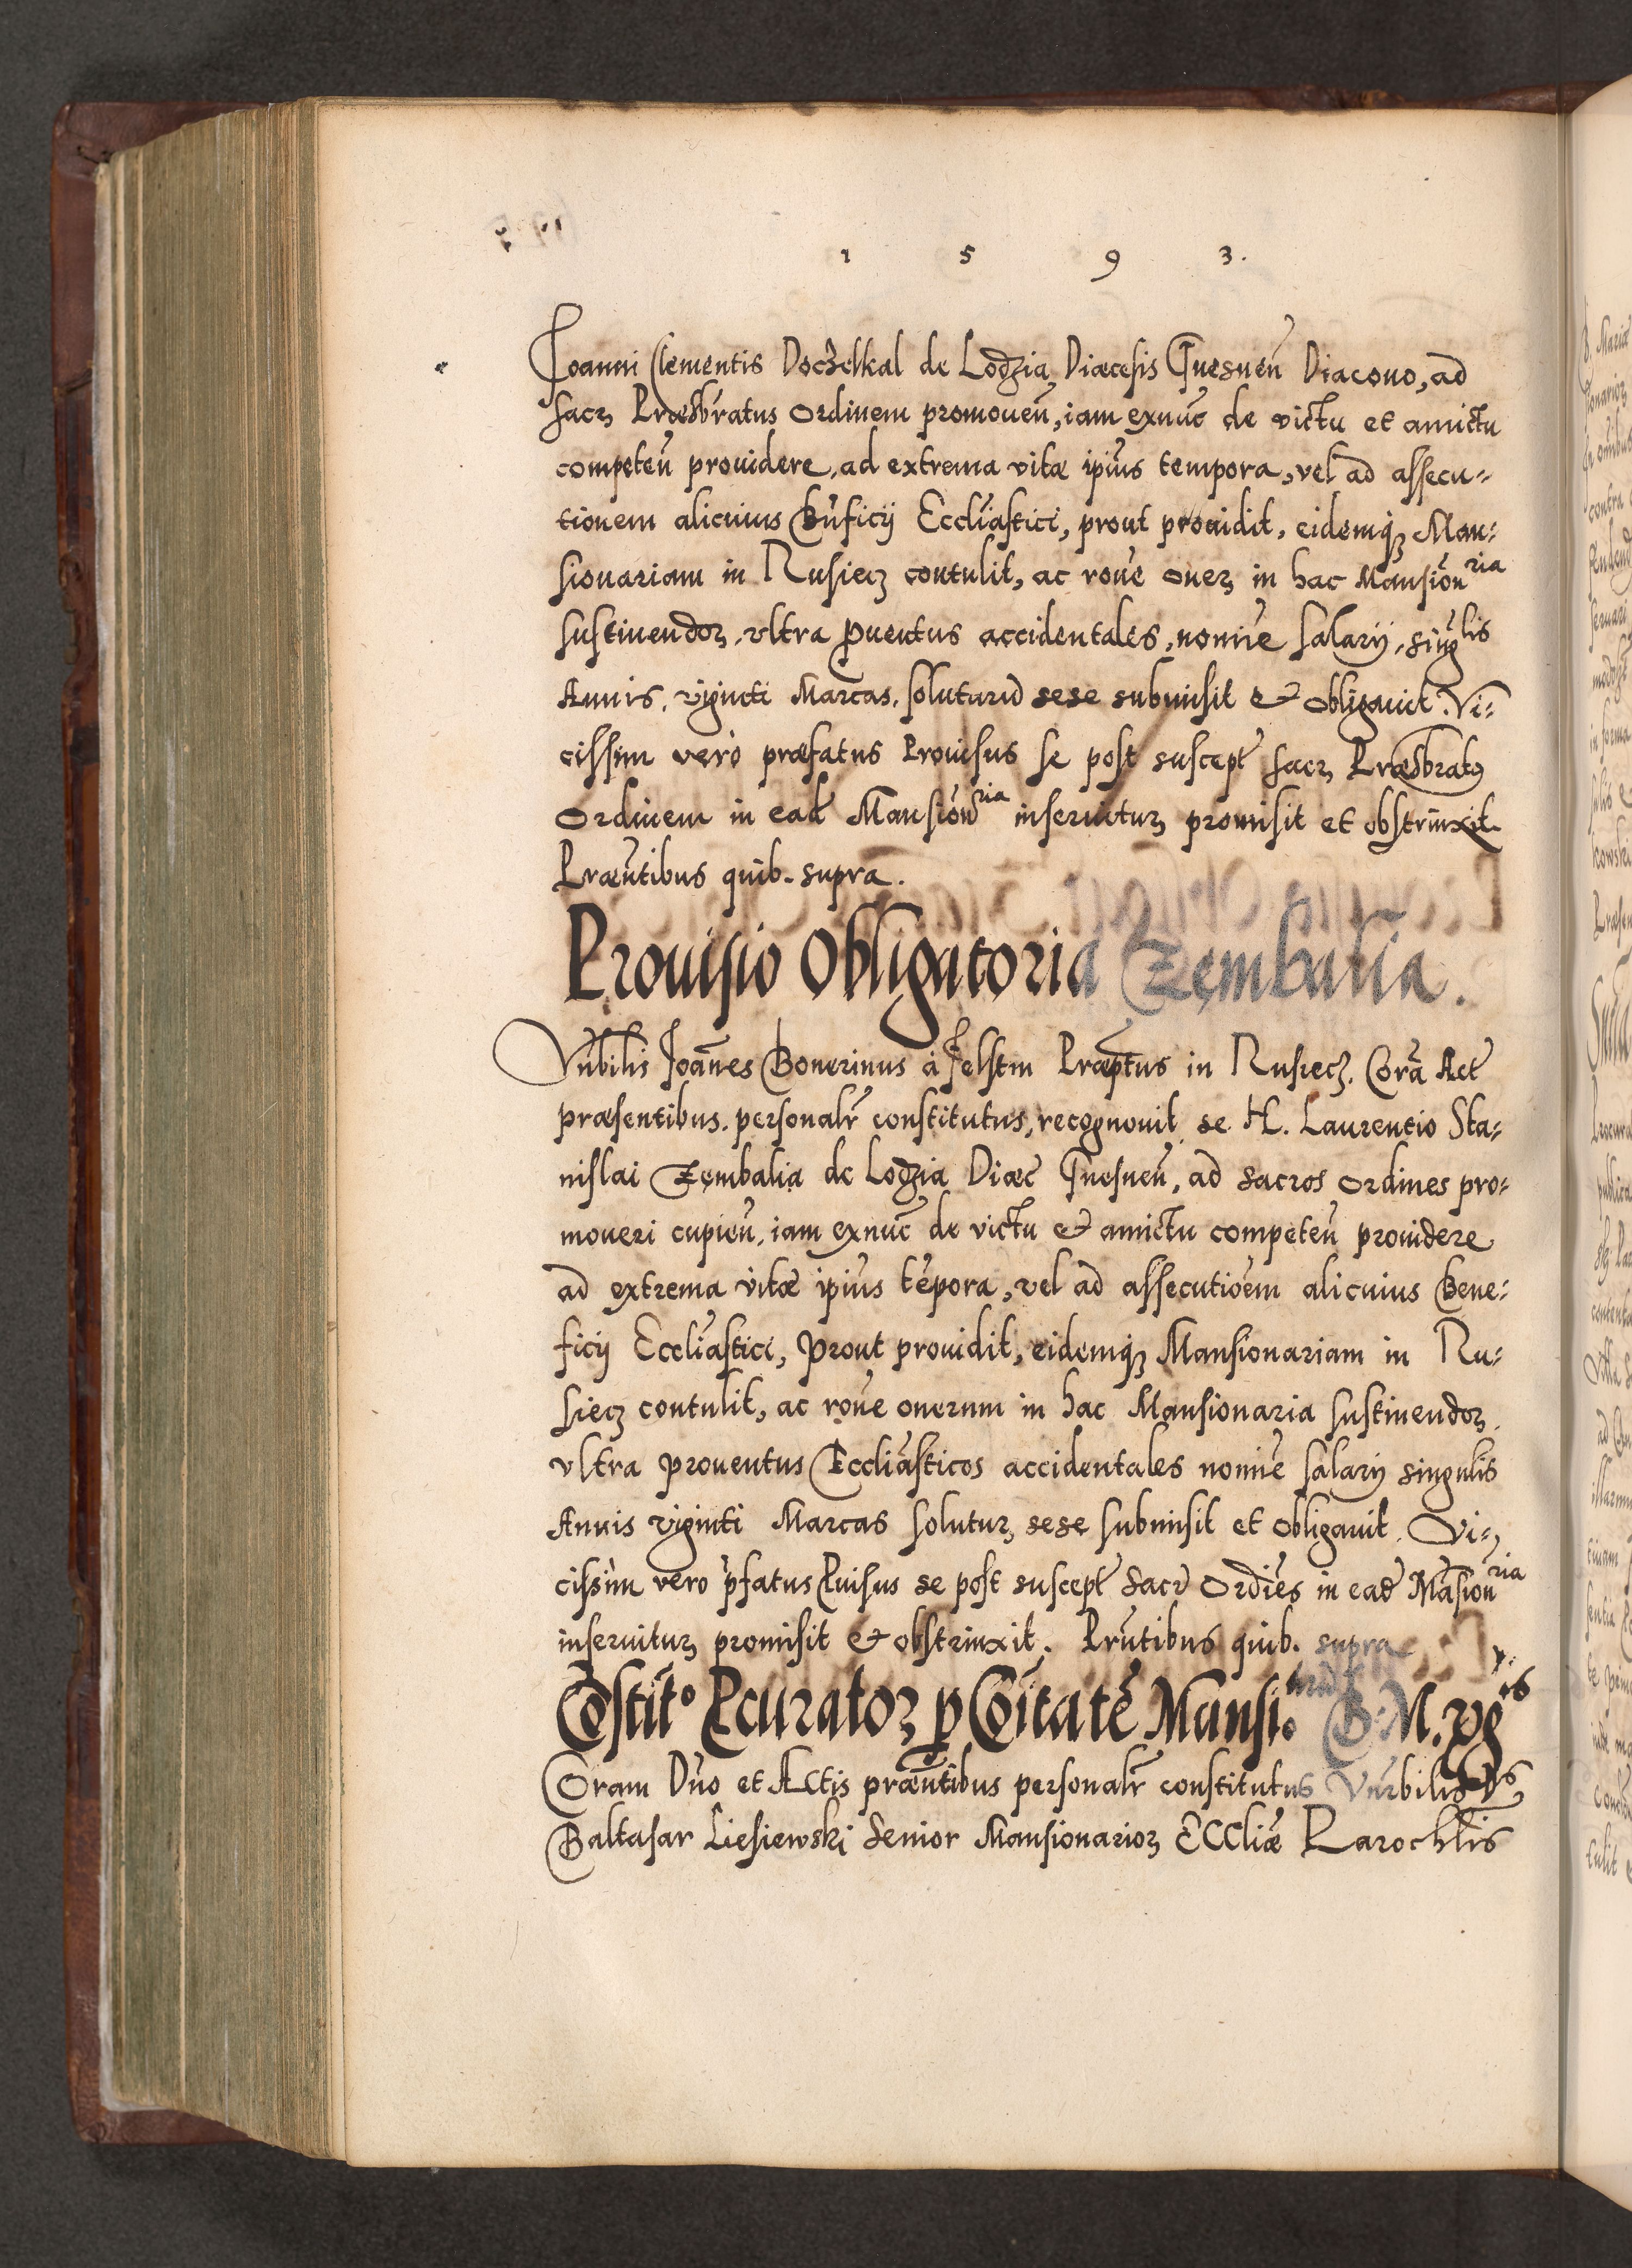 1 5 9 3.
Joanni Clementis Doczelkal de Lodzia Diœcesis Gnesneñ Diacono, ad
sacꝝ Præsbr̃atus Ordinem promoueñ, iam exnuc̃ de victu et amictu
competeñ prouidere, ad extrema vitæ ip̃ius tempora, vel ad assecu-
tionem alicuius Bñficij Eccl̃iastici, prout prouidit, eidemqꝫ Man-
sionariam in Rusiecz contulit, ac rõne oneꝝ in hac Mansion̂ria
sustinendoꝝ, vltra ꝓuentus accidentales, nomĩe salarij, singlis
Annis, viginti Marcas, soluturũ sese submisit & obligauit. Vi-
cissim verò præfatus Prouisus se post suscept̃ sacꝝ Præsbr̃atꝰ
Ordinem in ead̃ Mansion̂ria inseruituꝝ promisit et obstrinxit.
Præñtibus quib. supra.
Prouisio Obligatoria Zembalia.
Vñbilis Joañes Bonerinus à Felstin Præp̃tus in Rusiecz. Corã Act̃
præsentibus. personalr̃ constitutus, recognouit, se H. Laurentio Sta-
nislai Zembalia de Lodzia Diœc̃ Gnesneñ, ad sacros Ordines pro-
moueri cupieñ, iam exnuc̃ de victu & amictu competeñ prouidere
ad extrema vitæ ip̃ius tẽpora, vel ad assecutiõem alicuius Bene-
ficij Eccl̃iastici, prout prouidit, eidemqꝫ Mansionariam in Ru-
siecz contulit, ac rõne onerum in hac Mansionaria sustinendoꝝ.
vltra prouentus Eccl̃iasticos accidentales nomĩe salarij singulis
Annis viginti Marcas solutuꝝ sese submisit et obligauit. Vi-
cissim vero p̃fatus Puisus se post suscept̃ Sacr̃ Ordĩes in ead̃ Mãsion̂ria
inseruituꝝ promisit & obstrinxit. Prñtibus quib. supra
Cõstit̃o Pcuratoꝝ ꝑ Coĩtatẽ Mansi. B. M. vgis
Coram Dño et Actis præñtibus personalr̃ constitutus Vnrbilis Ds
Baltasar Liesiewski Senior Mansionarioꝝ ECCliæ Parochl̃is